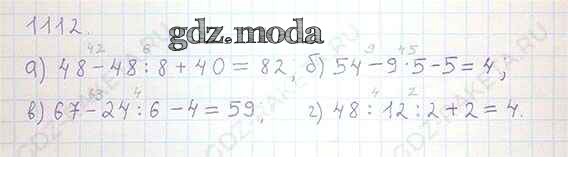 1112.
gdz.moda
42 6 9 45
а) 48 - 48 : 8 + 40 = 82, б) 54 - 9 · 5 - 5 = 4,
63 4 4 2
в) 67 - 24 : 6 - 4 = 59, г) 48 : 12 : 2 + 2 = 4.